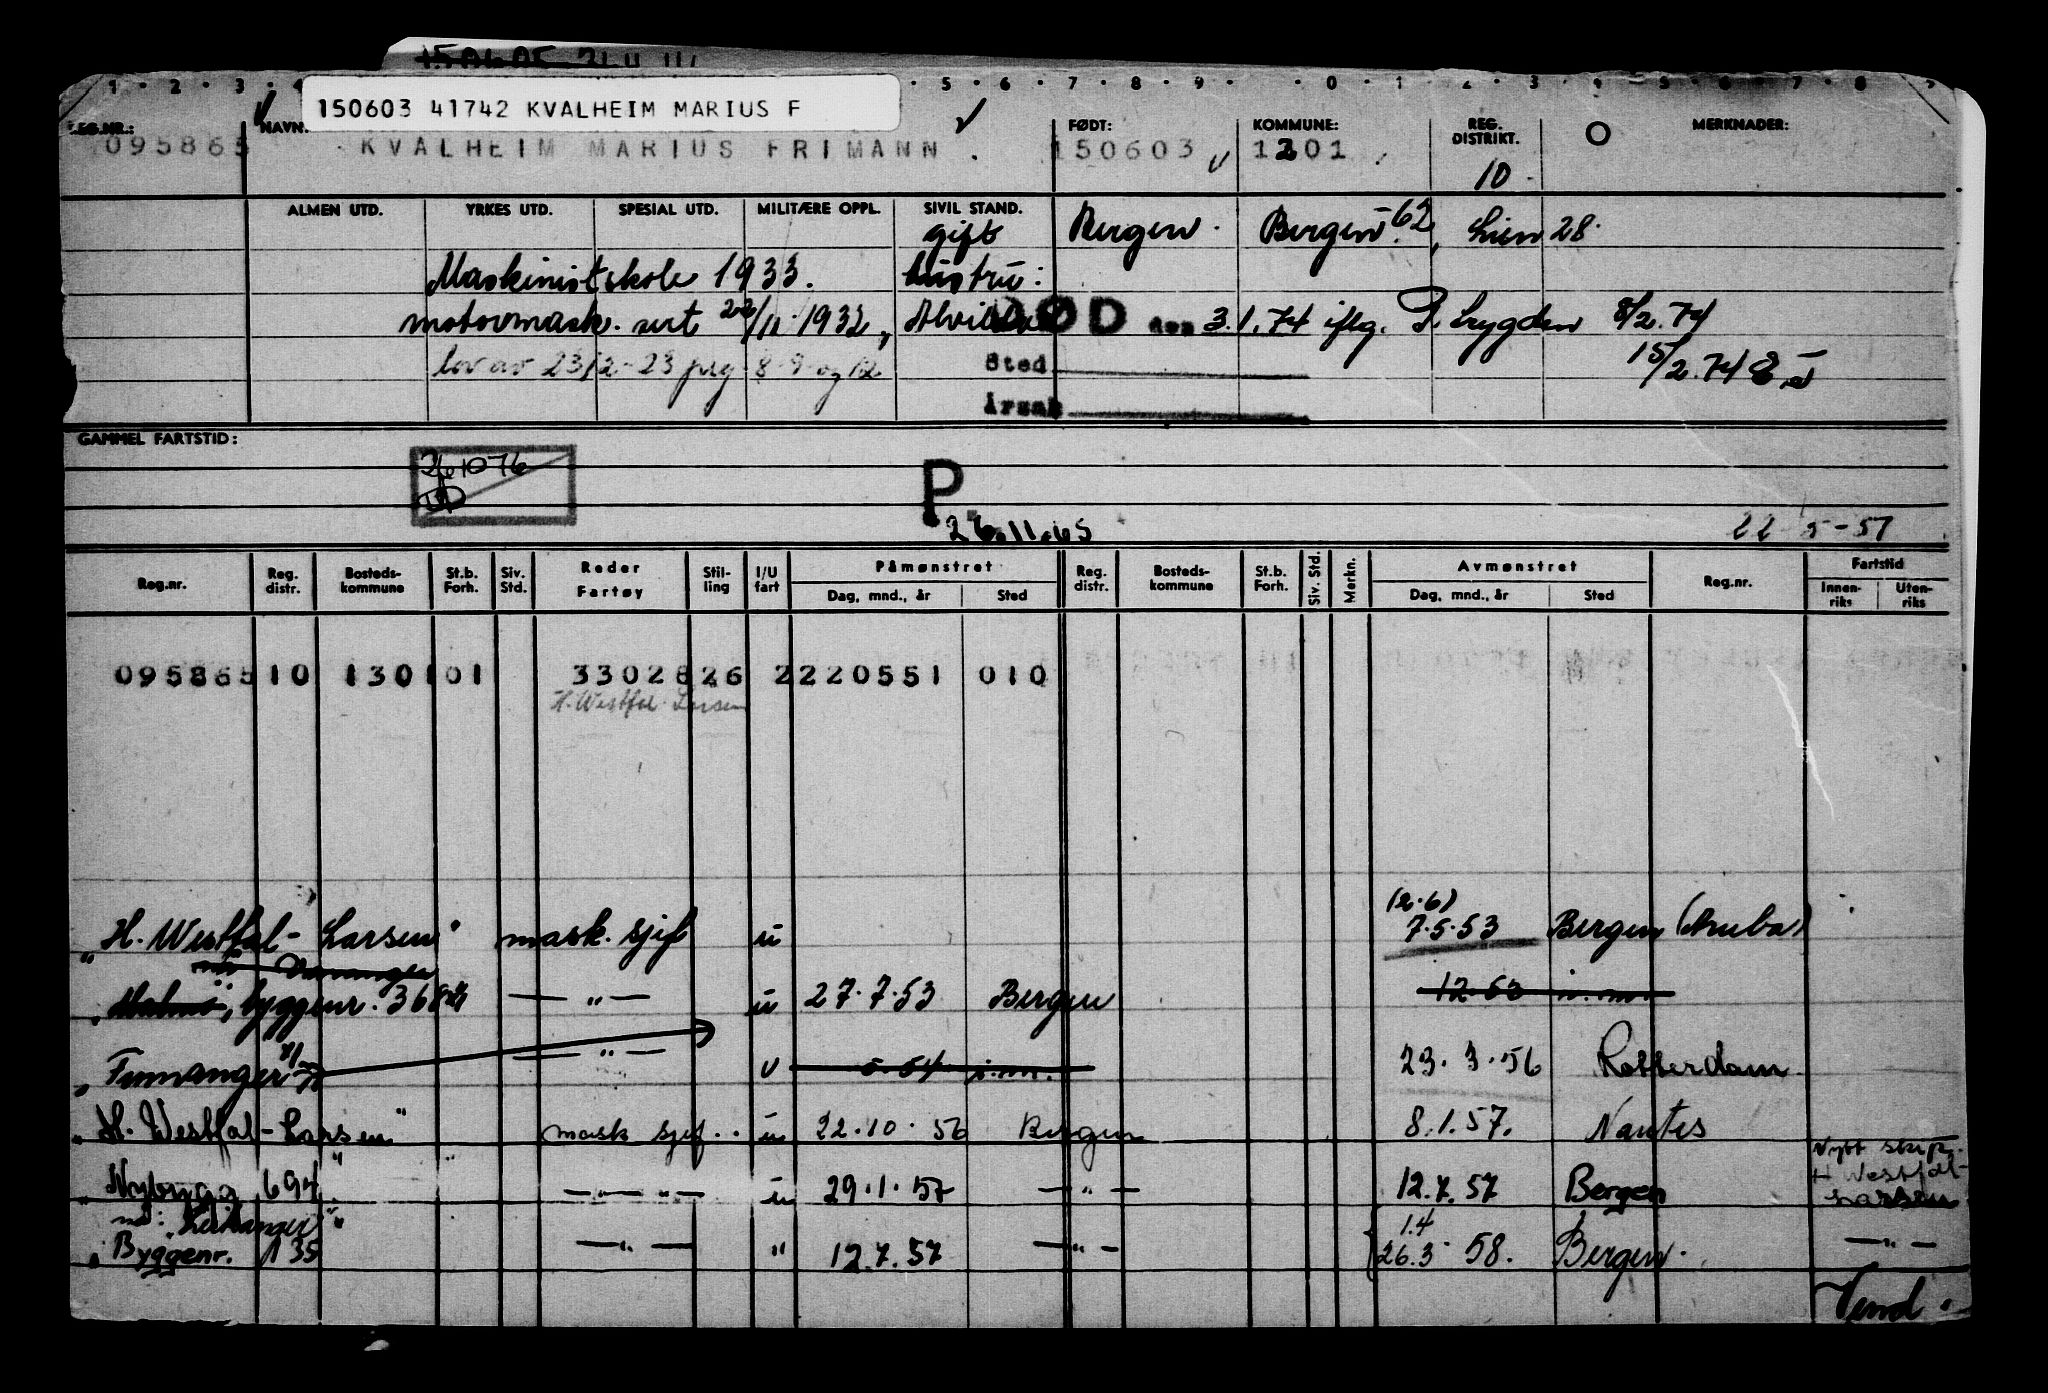 1 · 2 · 3 · 4
5 · 6 · 7 · 8 · 9 · · 0 · 1 · 2 · 3 · 4 · 5 · 6 · 7 · 8
150603 41742 KVALHEIM MARIUS F
REG.NR.: NAVN: FØDT: KOMMUNE: REG. DISTRIKT. O MERKNADER:
095865 KVALHEIM MARIUS FRIMANN. 150603 1201
10
ALMEN UTD. YRKES UTD. SPESIAL UTD. MILITÆRE OPPL. SIVIL STAND.
gift Bergen. Bergen. 62, Lien 28.
Maskinistskole 1933. hustru:
motormask. sert 22/11 · 1932, DØD den 3.1.74 iflg. Trygden 8/2.74
lov av 23/2-23 prg 8-9 og 12 Sted 15/2.74
Årsak
GAMMEL FARTSTID:
1076
P
26.11.65 22-5-57
Reg.nr. Reg. distr. Bosteds-kommune St.b. Forh. Siv. Std. Reder Fartøy Stil-ling I/U fart Påmønstret Dag, mnd., år Sted Reg. distr. Bosteds-kommune St.b. Forh. Siv. Std. Merkn. Avmønstret Dag, mnd., år Sted Reg.nr. Fartstid Innen-riks Uten-riks
095865 10 1301 01 33028 26 2 220551 010
H. Westfal-Larsen
(2.6)
"H. Westfal-Larsen" mask. sjef u 7.5.53 Bergen (Aruba)
Malmö, byggenr. 368 — " — u 27.7.53 Bergen 12-53 i.m.
"Finnanger" — " — u 5-54 i.m. 23.3.56 Rotterdam
"H. Westfal-Larsen" mask sjef.. u 22.10.56 Bergen 8.1.57. Nantes
Nytt skip.
"Nybygg 694" — " — u 29.1.57 — " — 12.7.57 Bergen H Westfal-Larsen
nå: "Leikanger" 1.4
"Byggenr. 135 — " — " 12.7.57 — " — 26.3 58. Bergen. — " —
Vend.